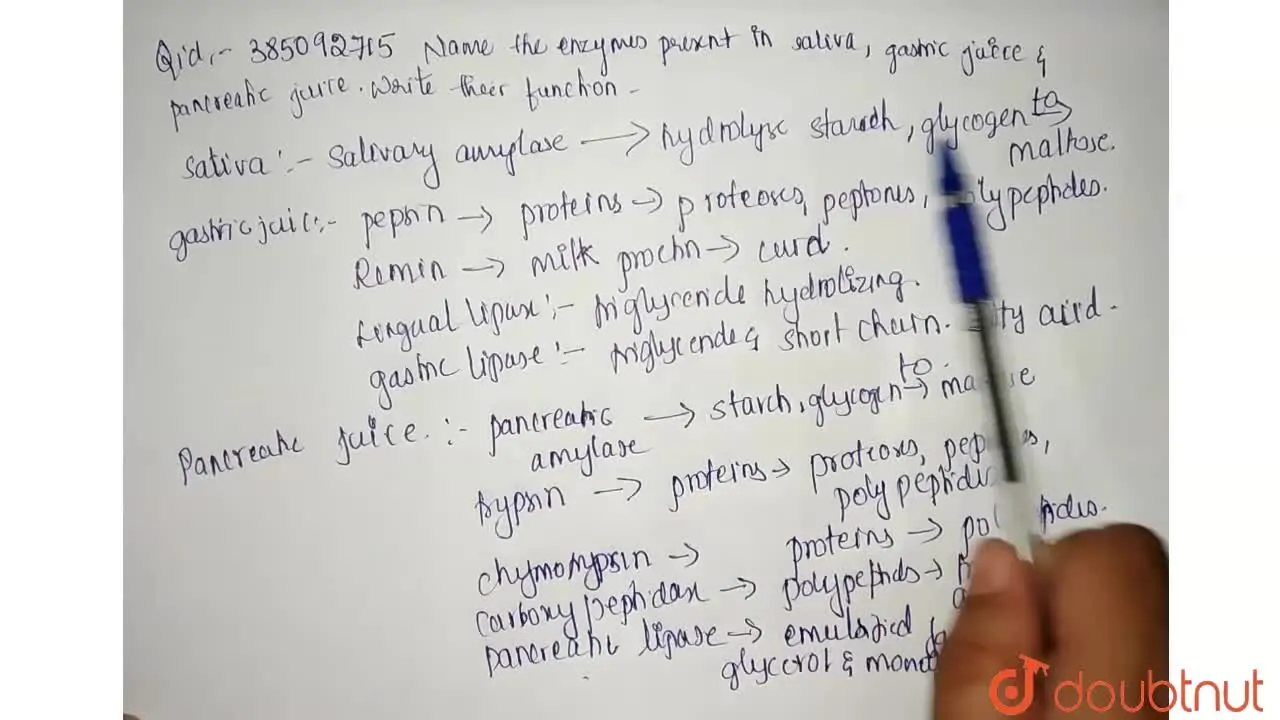 Qid:- 385092715 Name the enzymes present in saliva, gastric juice &
pancreatic juice. Write their function -
Saliva :- Salivary amylase → hydrolyse starch, glycogen to →
maltose.
gastric juice :- pepsin → proteins → proteoses, peptones,
Rennin → milk protein → curd.
Lingual lipase :- triglyceride hydrolizing.
gastric lipase :- triglyceride & short chain. acid.
Pancreatic juice :- pancreatic amylase → starch, glycogen to →
trypsin → proteins → proteoses,
polypeptides
chymotrypsin → proteins →
carboxypeptidase → polypeptides →
pancreatic lipase → emulsified
glycerol &
doubtnut